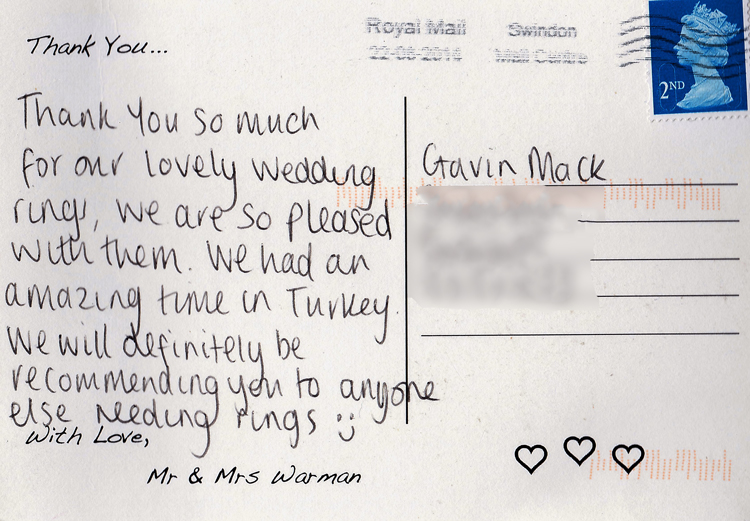 Royal Mail Swindon
22-08-2014 Mail Centre
2ND
Thank You...
Thank You so much
for our lovely wedding
rings, we are so pleased
with them. We had an
amazing time in Turkey.
We will definitely be
recommending you to anyone
else needing rings :)
With Love,
Mr & Mrs Warman
Gavin Mack